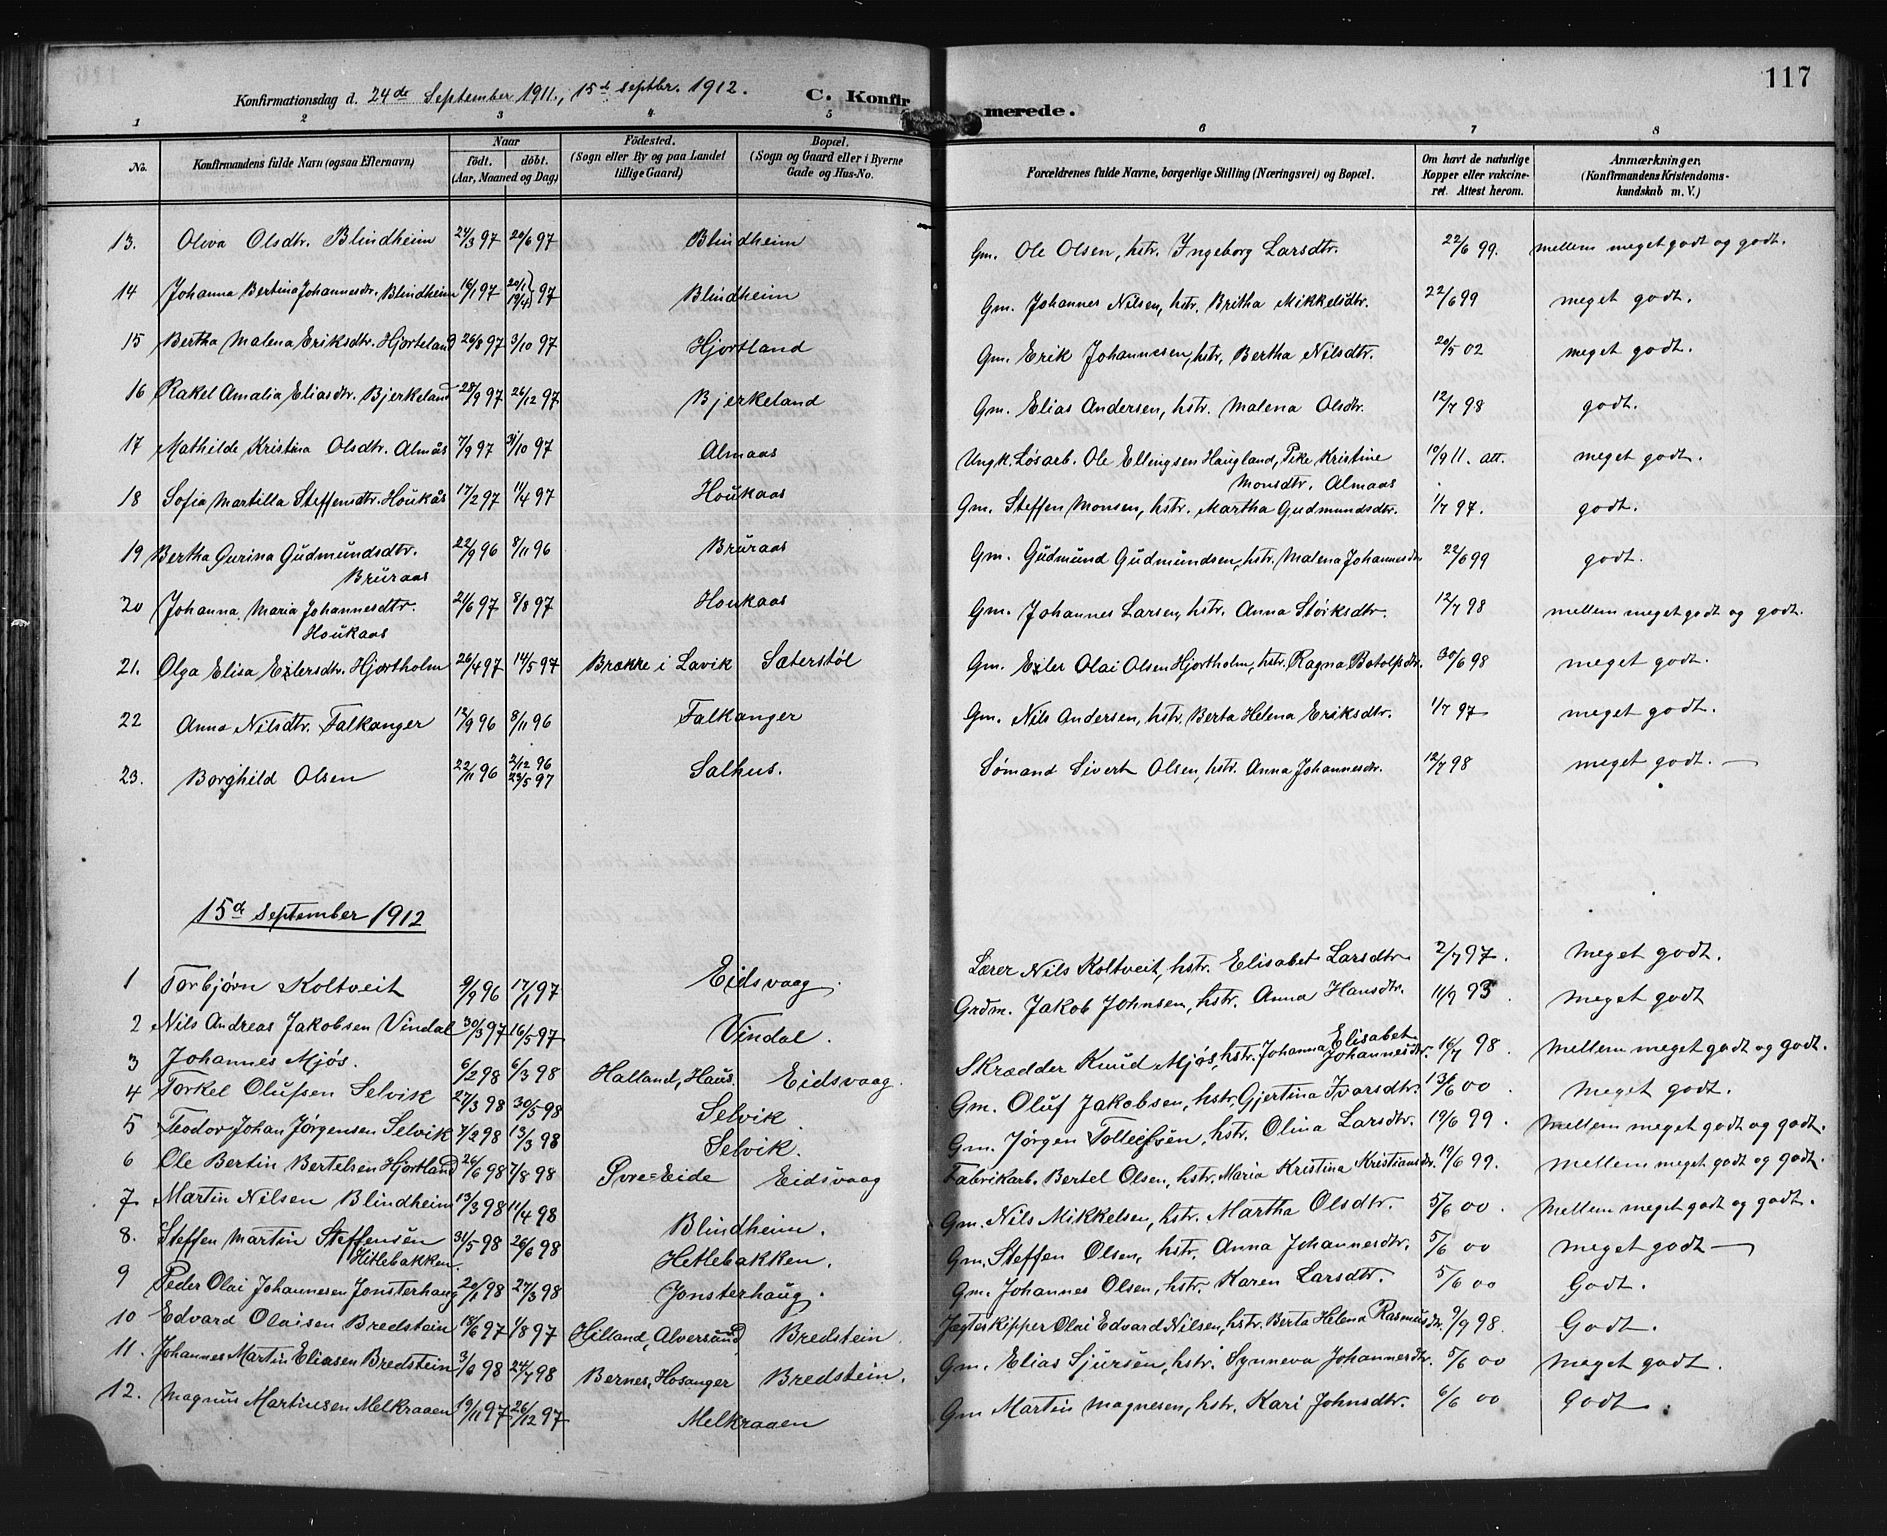 117
Konfirmationsdag d. 24de September 1911., 15d septbr. 1912. C. Konfirmerede.
1 2 3 4 5 6 7 8
No. Konfirmandens fulde Navn (ogsaa Efternavn) Naar født. døbt. (Aar, Maaned og Dag) Fødested. (Sogn eller By og paa Landet tillige Gaard) Bopæl. (Sogn og Gaard eller i Byerne Gade og Hus-No. Forældrenes fulde Navne, borgerlige Stilling (Næringsvei) og Bopæl. Om havt de naturlige Kopper eller vakcineret. Attest herom. Anmærkninger. (Konfirmandens Kristendomskundskab m. V.)
13. Oliva Olsdtr. Blindheim 24/3 97 20/6 97 Blindheim Gm. Ole Olsen, hstr. Ingeborg Larsdtr. 22/6 99. mellem meget godt og godt.
14 Johanna Bertina Johannesdtr. Blindheim 16/1 97 20/1 19/4 97 Blindheim Gm. Johannes Nilsen, hstr. Britha Mikkelsdtr. 22/6 99 meget godt.
15 Bertha Malena Eriksdtr. Hjorteland 26/8 97 3/10 97 Hjortland Gm. Erik Johannesen, hstr, Bertha Nilsdtr. 20/5 02 meget godt.
16 Rakel Amalia Eliasdtr. Bjerkeland 28/9 97 26/12 97 Bjerkeland Gm. Elias Andersen, hstr. Malena Olsdtr. 12/7 98 godt.
17 Mathilde Kristina Olsdtr. Almås 7/9 97 31/10 97 Almaas Ungk. Løsarb. Ole Ellingsen Haugland, Pike Kristine Monsdtr. Almaas 10/9 11. att. meget godt.
18 Sofia Martilla Steffensdtr. Houkås 17/2 97 11/4 97 Houkaas Gm. Steffen Monsen, hstr. Martha Gudmundsdtr. 1/7 97. godt.
19 Bertha Gurina Gudmundsdtr. Bruraas 22/9 96 8/11 96 Bruraas Gm. Gudmund Gudmundsen, hstr. Malena Johannesdtr 22/6 99 godt.
20 Johanna Maria Johannesdtr. Houkaas 21/6 97 8/8 97 Houkaas Gm. Johannes Larsen, hstr. Anna Størksdtr. 12/7 98 mellem meget godt og godt.
21. Olga Elisa Eilersdtr. Hjortholm 26/4 97 14/5 97 Brække i Lavik Sæterstøl Gm. Eiler Olai Olsen Hjortholm, hstr. Ragna Botolfsdtr. 30/6 98 meget godt.
22 Anna Nilsdtr. Falkanger 12/9 96 8/11 96 Falkanger Gm. Nils Andersen, hstr. Berta Helena Eriksdtr. 1/7 97 meget godt.
23. Borghild Olsen 22/11 96 2/12 96 23/5 97 Salhus. Sømand Sivert Olsen, hstr. Anna Johannesdtr. 12/7 98 meget godt.
15d September 1912
1 Torbjørn Koltveit 9/9 96 17/1 97 Eidsvaag. Lærer Nils Koltveit, hstr. Elisabet Larsdtr 2/7 97. meget godt.
2 Nils Andreas Jakobsen Vindal 30/3 97 16/5 97 Vindal. Grdm. Jakob Johnsen, hstr. Anna Hansdtr. 11/9 93. meget godt
3 Johannes Mjøs. 6/2 98 6/3 98 Halland, Haus. Eidsvaag. Skrædder Knud Mjøs, hstr. Johanna Elisabet Johannesdtr. 16/7 98. Mellem meget godt og godt.
4 Torkel Olufsen Selvik 27/3 98 30/5 98 Selvik. Gm. Oluf Jakobsen, hstr. Gjertina Ivarsdtr. 13/6 00. meget godt.
5 Teodor Johan Jørgensen Selvik 7/2 98 13/3 98 Selvik. Gm. Jørgen Tolleifsen, hstr. Olina Larsdtr. 19/6 99. Mellem meget godt og godt.
6 Ole Bertin Bertelsen Hjortland 26/6 98 7/8 98 Øvre=Eide Eidsvaag Fabrikarb. Bertel Olsen, hstr. Maria Kristina Kristiansdtr. 19/6 99. Mellem meget godt og godt.
7 Martin Nilsen Blindheim 13/3 98 11/4 98 Blindheim. Gm. Nils Mikkelsen, hstr. Martha Olsdtr. 5/6 00. Mellem meget godt og godt.
8. Steffen Martin Steffensen Hitlebakken. 31/5 98 26/6 98 Hetlebakken. Gm. Steffen Olsen, hstr. Anna Johannesdtr. 5/6 00 meget godt
9 Peder Olai Johannesen Jonsterhaug 20/1 98 27/3 98 Jonsterhaug. Gm. Johannes Olsen, hstr. Karen Larsdtr. 5/6 00 Godt.
10 Edvard Olaisen Bredstein 18/6 97 1/8 97 Hilland, Alversund Bredstein. Jægteskipper Olai Edvard Nilsen, hstr. Berta Helena Rasmusdtr. 9/9 98. Godt.
11. Johannes Martin Eliasen Bredstein 98 24/7 98 Bernes, Hosanger Bredstein. Gm. Elias Sjursen, hstr. Synneva Johannesdtr. 5/6 00 meget godt.
12. Magnus Martinsen Melkraaen 19/11 97 26/12 97 Melkraaen Gm Martin Magnesen, hstr. Kari Johnsdtr. 6/6 00 Godt.